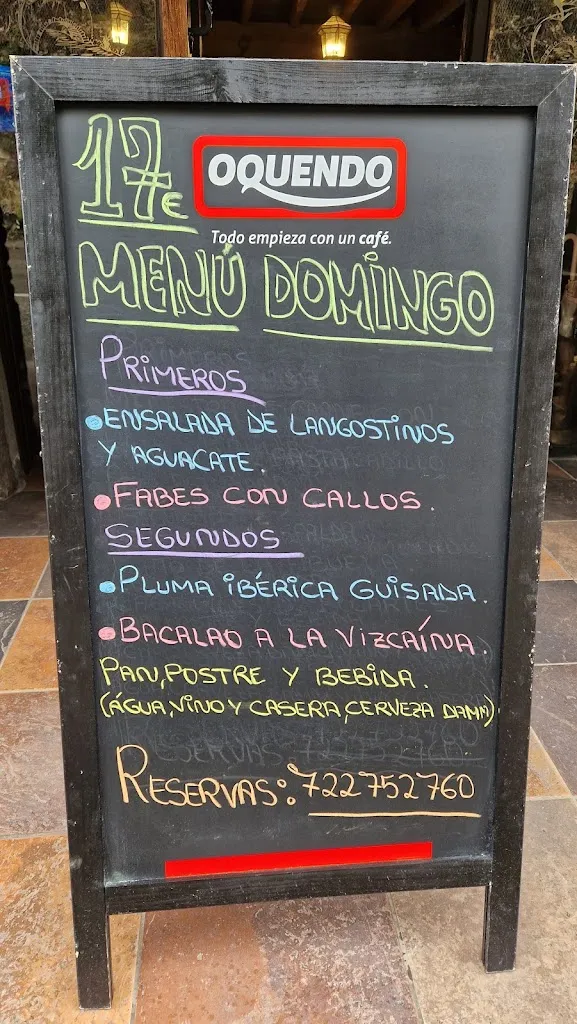 17€
OQUENDO
Todo empieza con un café.
MENÚ DOMINGO
PRIMEROS
• ENSALADA DE LANGOSTINOS
Y AGUACATE.
• FABES CON CALLOS.
SEGUNDOS
• PLUMA IBÉRICA GUISADA.
• BACALAO A LA VIZCAÍNA.
PAN, POSTRE Y BEBIDA.
(ÁGUA, VINO Y CASERA, CERVEZA DAMM)
RESERVAS: 722752760